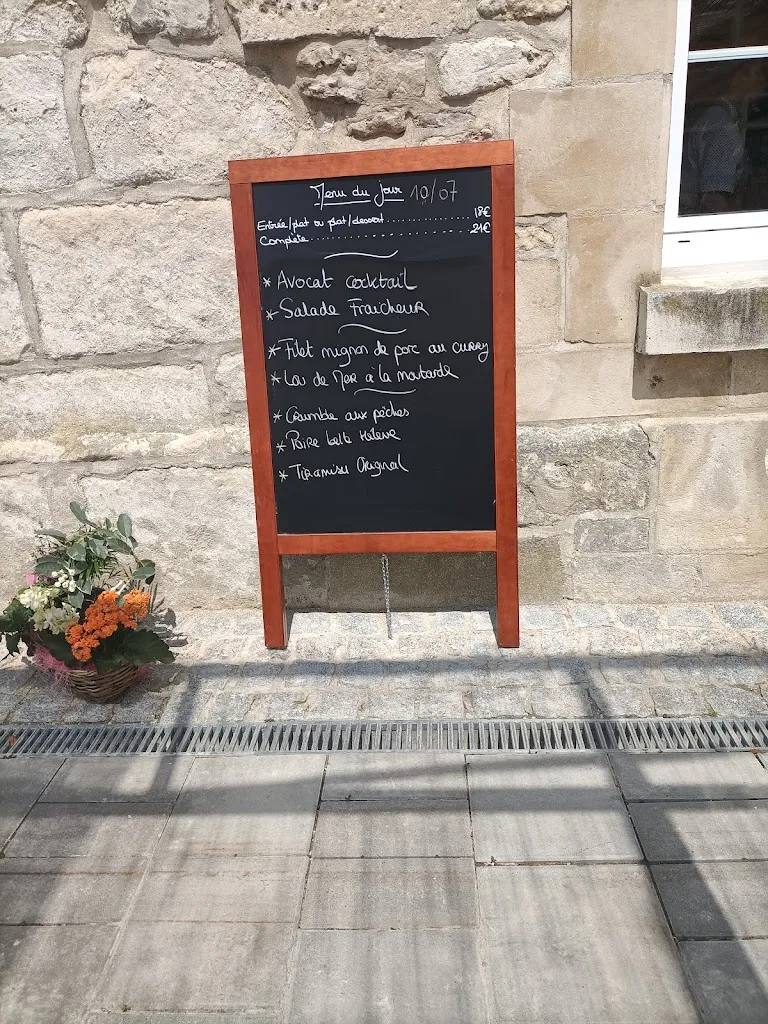 Menu du jour 10/07
Entrée/plat ou plat/dessert................ 18€
Complète........................ 21€
* Avocat cocktail
* Salade Fraîcheur
* Filet mignon de porc au curry
* Lou de Mer à la moutarde
* Crumble aux pêches
* Poire belle Hélène
* Tiramisu Original